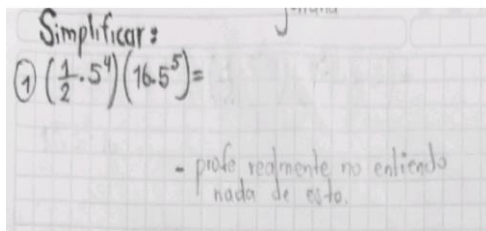 Simplificar:
① (1/2 · 5⁴)(16·5⁵)=
- profe realmente no entiendo
nada de esto.